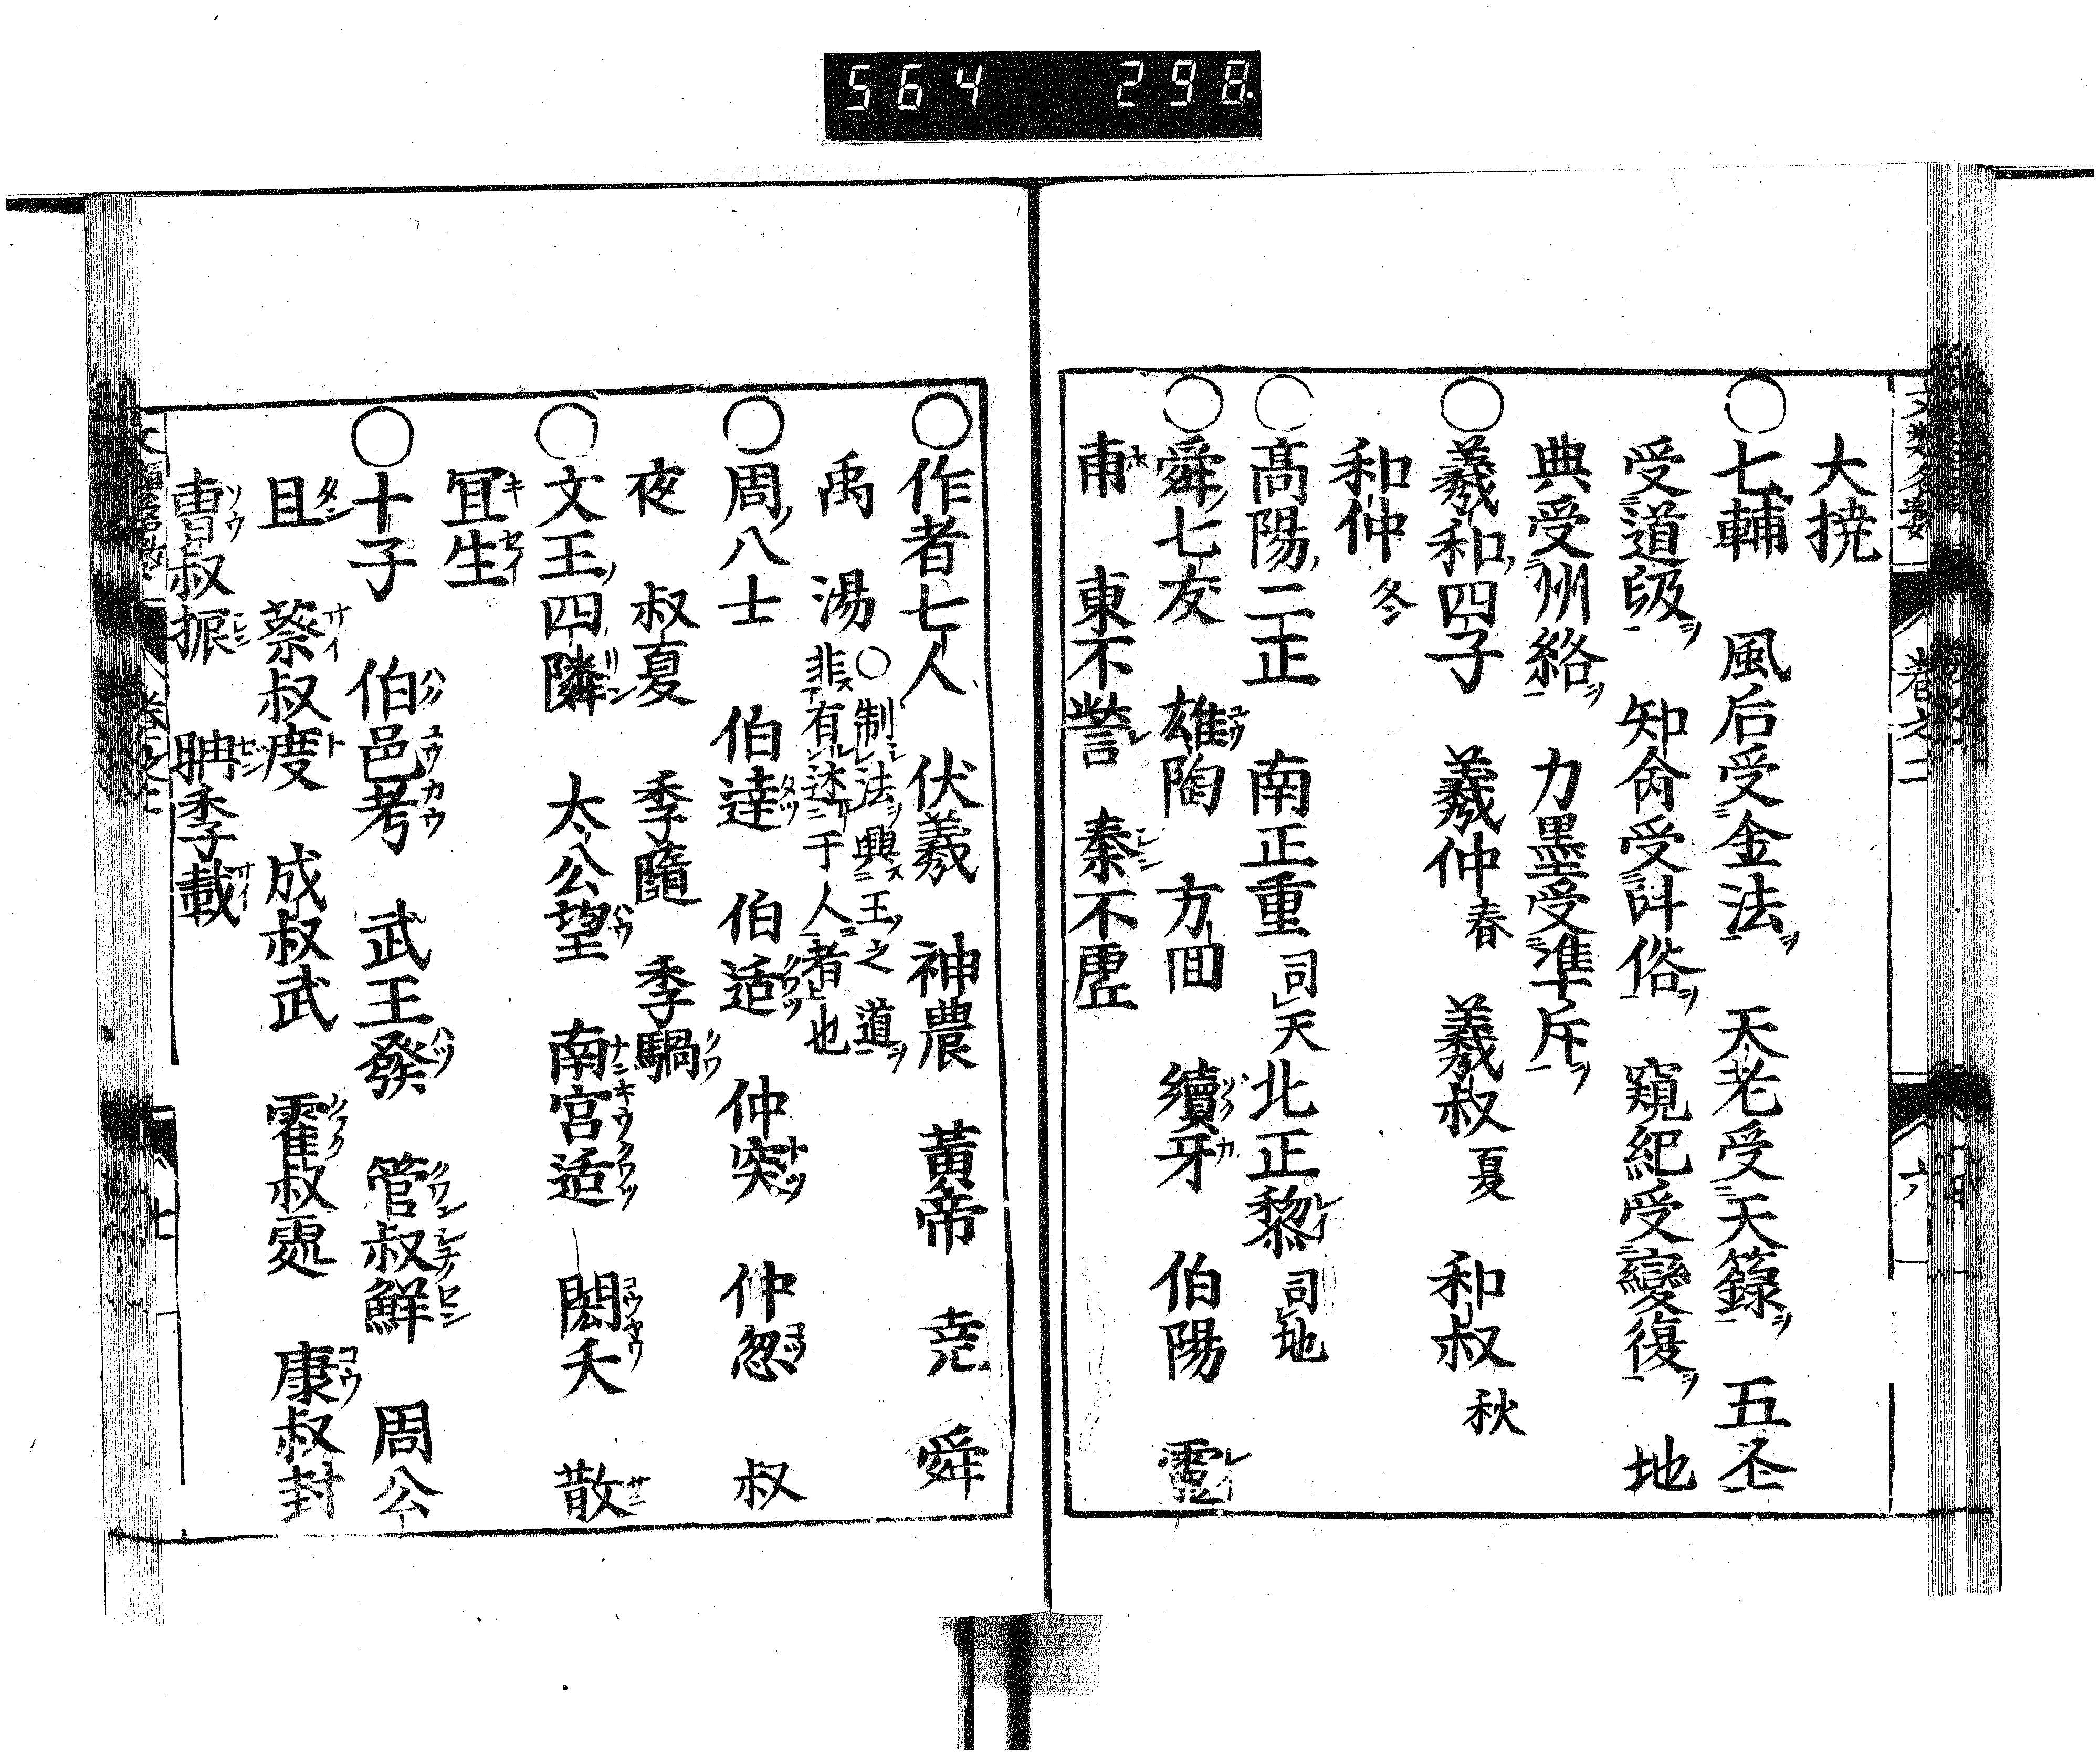 564 298
大撓
○七輔 風后受金法ヲ 天老受天籙ヲ 五丕
受道級ヲ 知命受計俗ヲ 窺紀受變復ヲ 地
典受州絡ヲ 力墨受準斥ヲ
○羲和四子 羲仲春 羲叔夏 和叔秋
和仲冬
○髙陽二正 南正重司天 北正黎司地
○舜七友 雄陶 方回 續牙 伯陽 霊
甫 東不訾 秦不虛
卷之二
六
○作者七人 伏羲 神農 黃帝 尭 舜
禹 湯 ○制法興王之道
非有述于人者也
○周八士 伯達 伯适 仲突 仲忽 叔
夜 叔夏 季隨 季騧
○文王四隣 太公望 南宮适 閎夭 散
冝生
○十子 伯邑考 武王發 管叔鮮 周公
旦 蔡叔度 成叔武 霍叔䖏 康叔封
曺叔振 聃季載
七